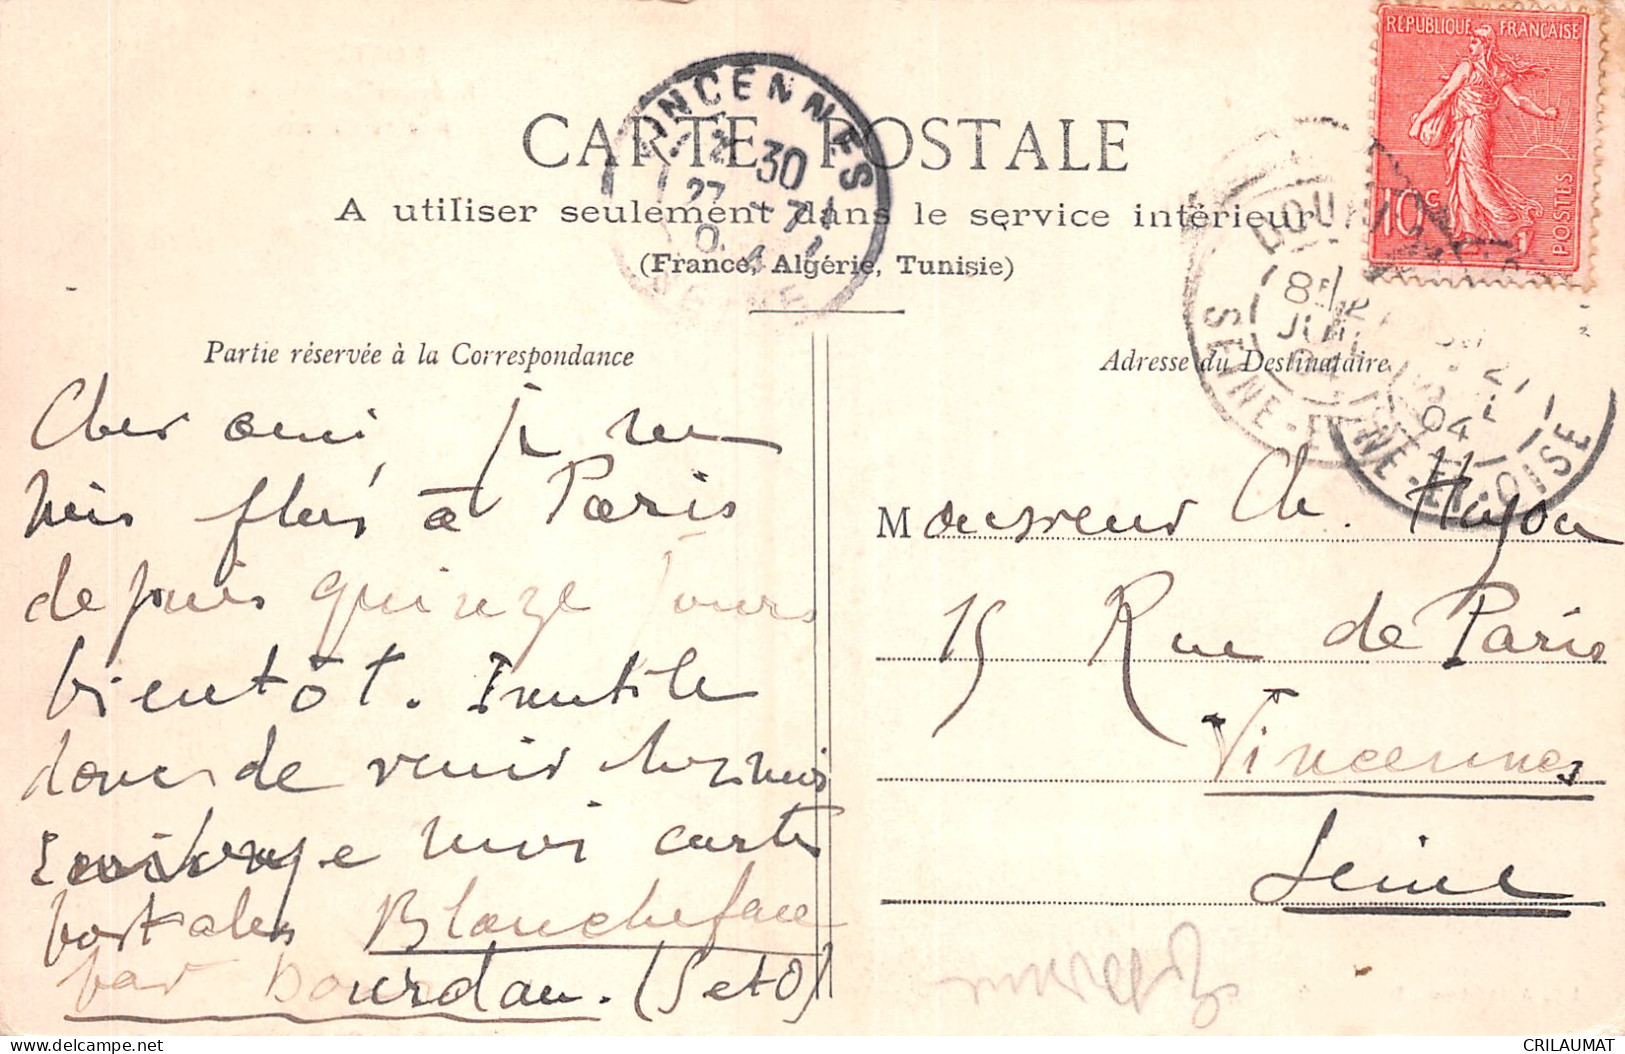 RÉPUBLIQUE FRANÇAISE
10c
POSTES
VINCENNES
30
27 -7
04
CARTE POSTALE
A utiliser seulement dans le service intérieur
(France, Algérie, Tunisie)
8E
JUIL
04
SEINE-ET-OISE
21
04
Partie réservée à la Correspondance
Adresse du Destinataire
Cher ami, je ne
suis plus à Paris
depuis quinze jours
bientôt. Inutile
donc de venir chez moi
moi cartes
postales Blancheface
par Dourdan. (S et O)
Monsieur Ch. Huyon
15 Rue de Paris
Vincennes
Seine
delcampe.net
CRILAUMAT